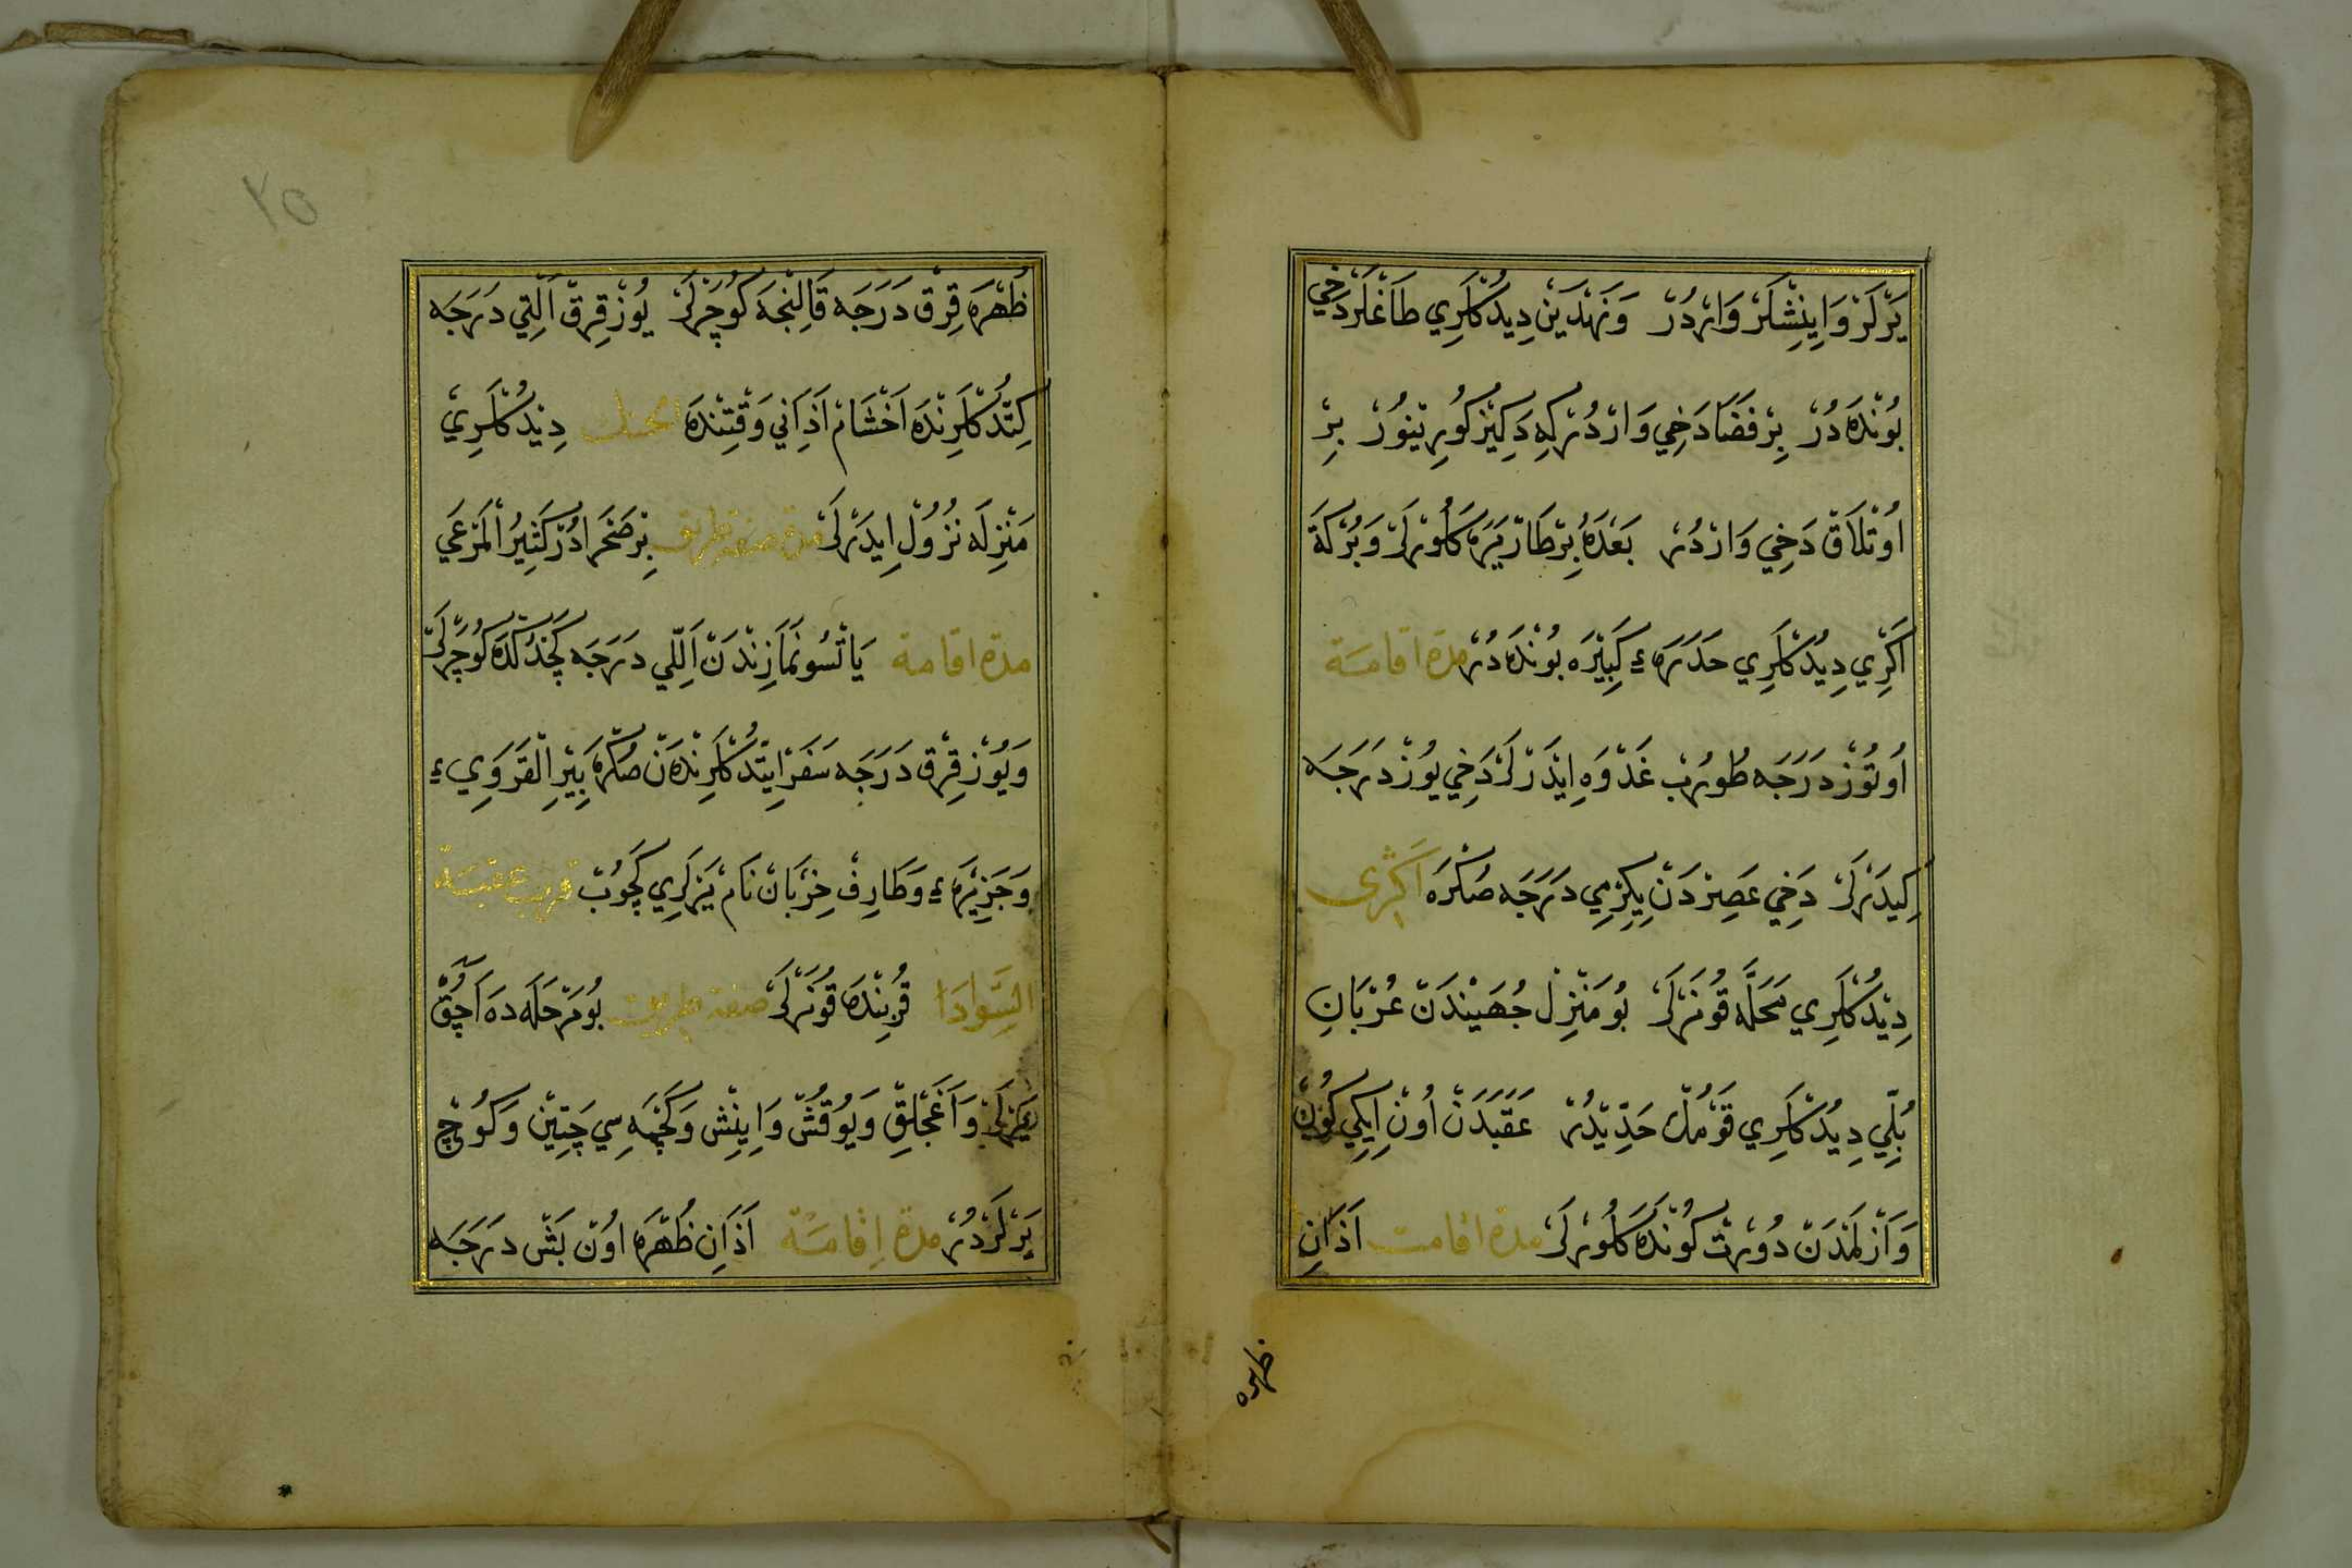 يَرْلَرْ وَاِينِشْلَرْ وَارْدُرْ وَنَهْدَيْنْ دِيدُكْلَرِي طَاغْلَرْ دَخِي
بُونْدَه دُرْ بِرْ فَضَا دَخِي وَارْدُرْ كِه دَكِيزْ كُورِينُورْ بِرْ
اُوتْلَاقْ دَخِي وَارْدُرْ بَعْدَهُ بِرْ طَارْ يَرَه كَلُورْلَرْ وَبُرْكَة
اَكْرِي دِيدُكْلَرِي حَدَرَهءِ كَبِيْرَه بُونْدَه دُرْ مدة اقامة
اُوتُوزْ دَرَجَه طُورُبْ غَدْوَه اِيدَرْلَرْ دَخِي يُوزْ دَرَجَه
كِيدَرْلَرْ دَخِي عَصِرْدَنْ يِكِرْمِي دَرَجَه صُكْرَه اَكْرَى
دِيْدُكْلَرِي مَحَلَّه قُونَرْلَرْ بُو مَنْزِلْ جُهَيْنَدَنْ عُرْبَانِ
بُلِّي دِيدُكْلَرِي قَوْمُكْ حَدِّيْدُرْ عَقَبَدَنْ اُونْ اِيكِي كُونْكْ
وَاَزْلَمْدَنْ دُورْتْ كُونْدَه كَلُورْلَرْ مدة اقامت اَذَانِ
ظهره
٢٥
ظُهْرَه قِرْقْ دَرَجَه قَالِنْجَه كُوچَرْلَرْ يُوزْ قِرْقْ اَلْتِي دَرَجَه
كِتْدُكْلَرِنْدَه اَخْشَامْ اَذَانِي وَقْتِنْدَه الحنك دِيْدُكْلَرِي
مَنْزِلَه نُزُولْ اِيدَرْلَرْ صفة طريق بِرْ صَحْرَادُرْ كَثِيرُ الْمَرْعَي
مدة اقامة يَاتْسُو نَمَازِنْدَنْ اَللِّي دَرَجَه كَچْدُكْدَه كُوچَرْلَرْ
وَيُوزْ قِرْقْ دَرَجَه سَفَرْ اِيتْدُكْلَرِنْدَنْ صُكْرَه بِيْرِ الْقَرَوِيءِ
وَجَزِيْرَهءِ وَطَارِفْ خِرْبَانْ نَامْ يَرْلَرِي كَچُوبْ قرب عقبة
السَّوادَا قُرْبِنْدَه قُونَرْلَرْ صفة طريق بُو مَرْحَلَه دَه اَچُقْ
يَرْلَرْ وَاَغَجْلِقْ وَيُوقُشْ وَاِينِشْ وَكَچْمَه سِي چَتِينْ وَكُوجْ
يَرْلَرْ دُرْ مدة اقامة اَذَانِ ظُهْرَه اُونْ بَشْ دَرَجَه